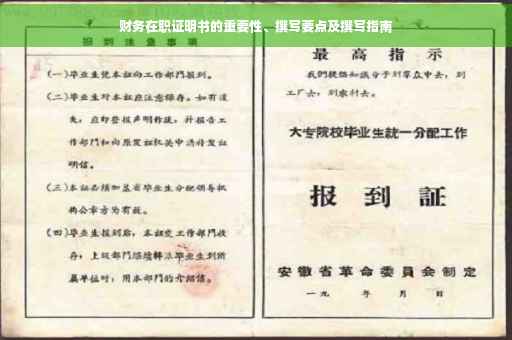 财务在职证明书的重要性、撰写要点及撰写指南
报到注意事项
(一)毕业生凭本证向工作部门报到。
(二)毕业生对本证应注意保存。如有遗
失，应即登报声明作废，并报告工
作部门和向原发证机关申请补发证
明信。
(三)本证必须加盖省毕业生分配领导机
构公章方为有效。
(四)毕业生报到后，本证交工作部门收
存；上级部门继续转派毕业生到所
属单位时，用本部门的介绍信。
最高指示
我们提倡知识分子到群众中去，到
工厂去，到农村去。
大专院校毕业生统一分配工作
报到证
安徽省革命委员会制定
一九 年 月 日